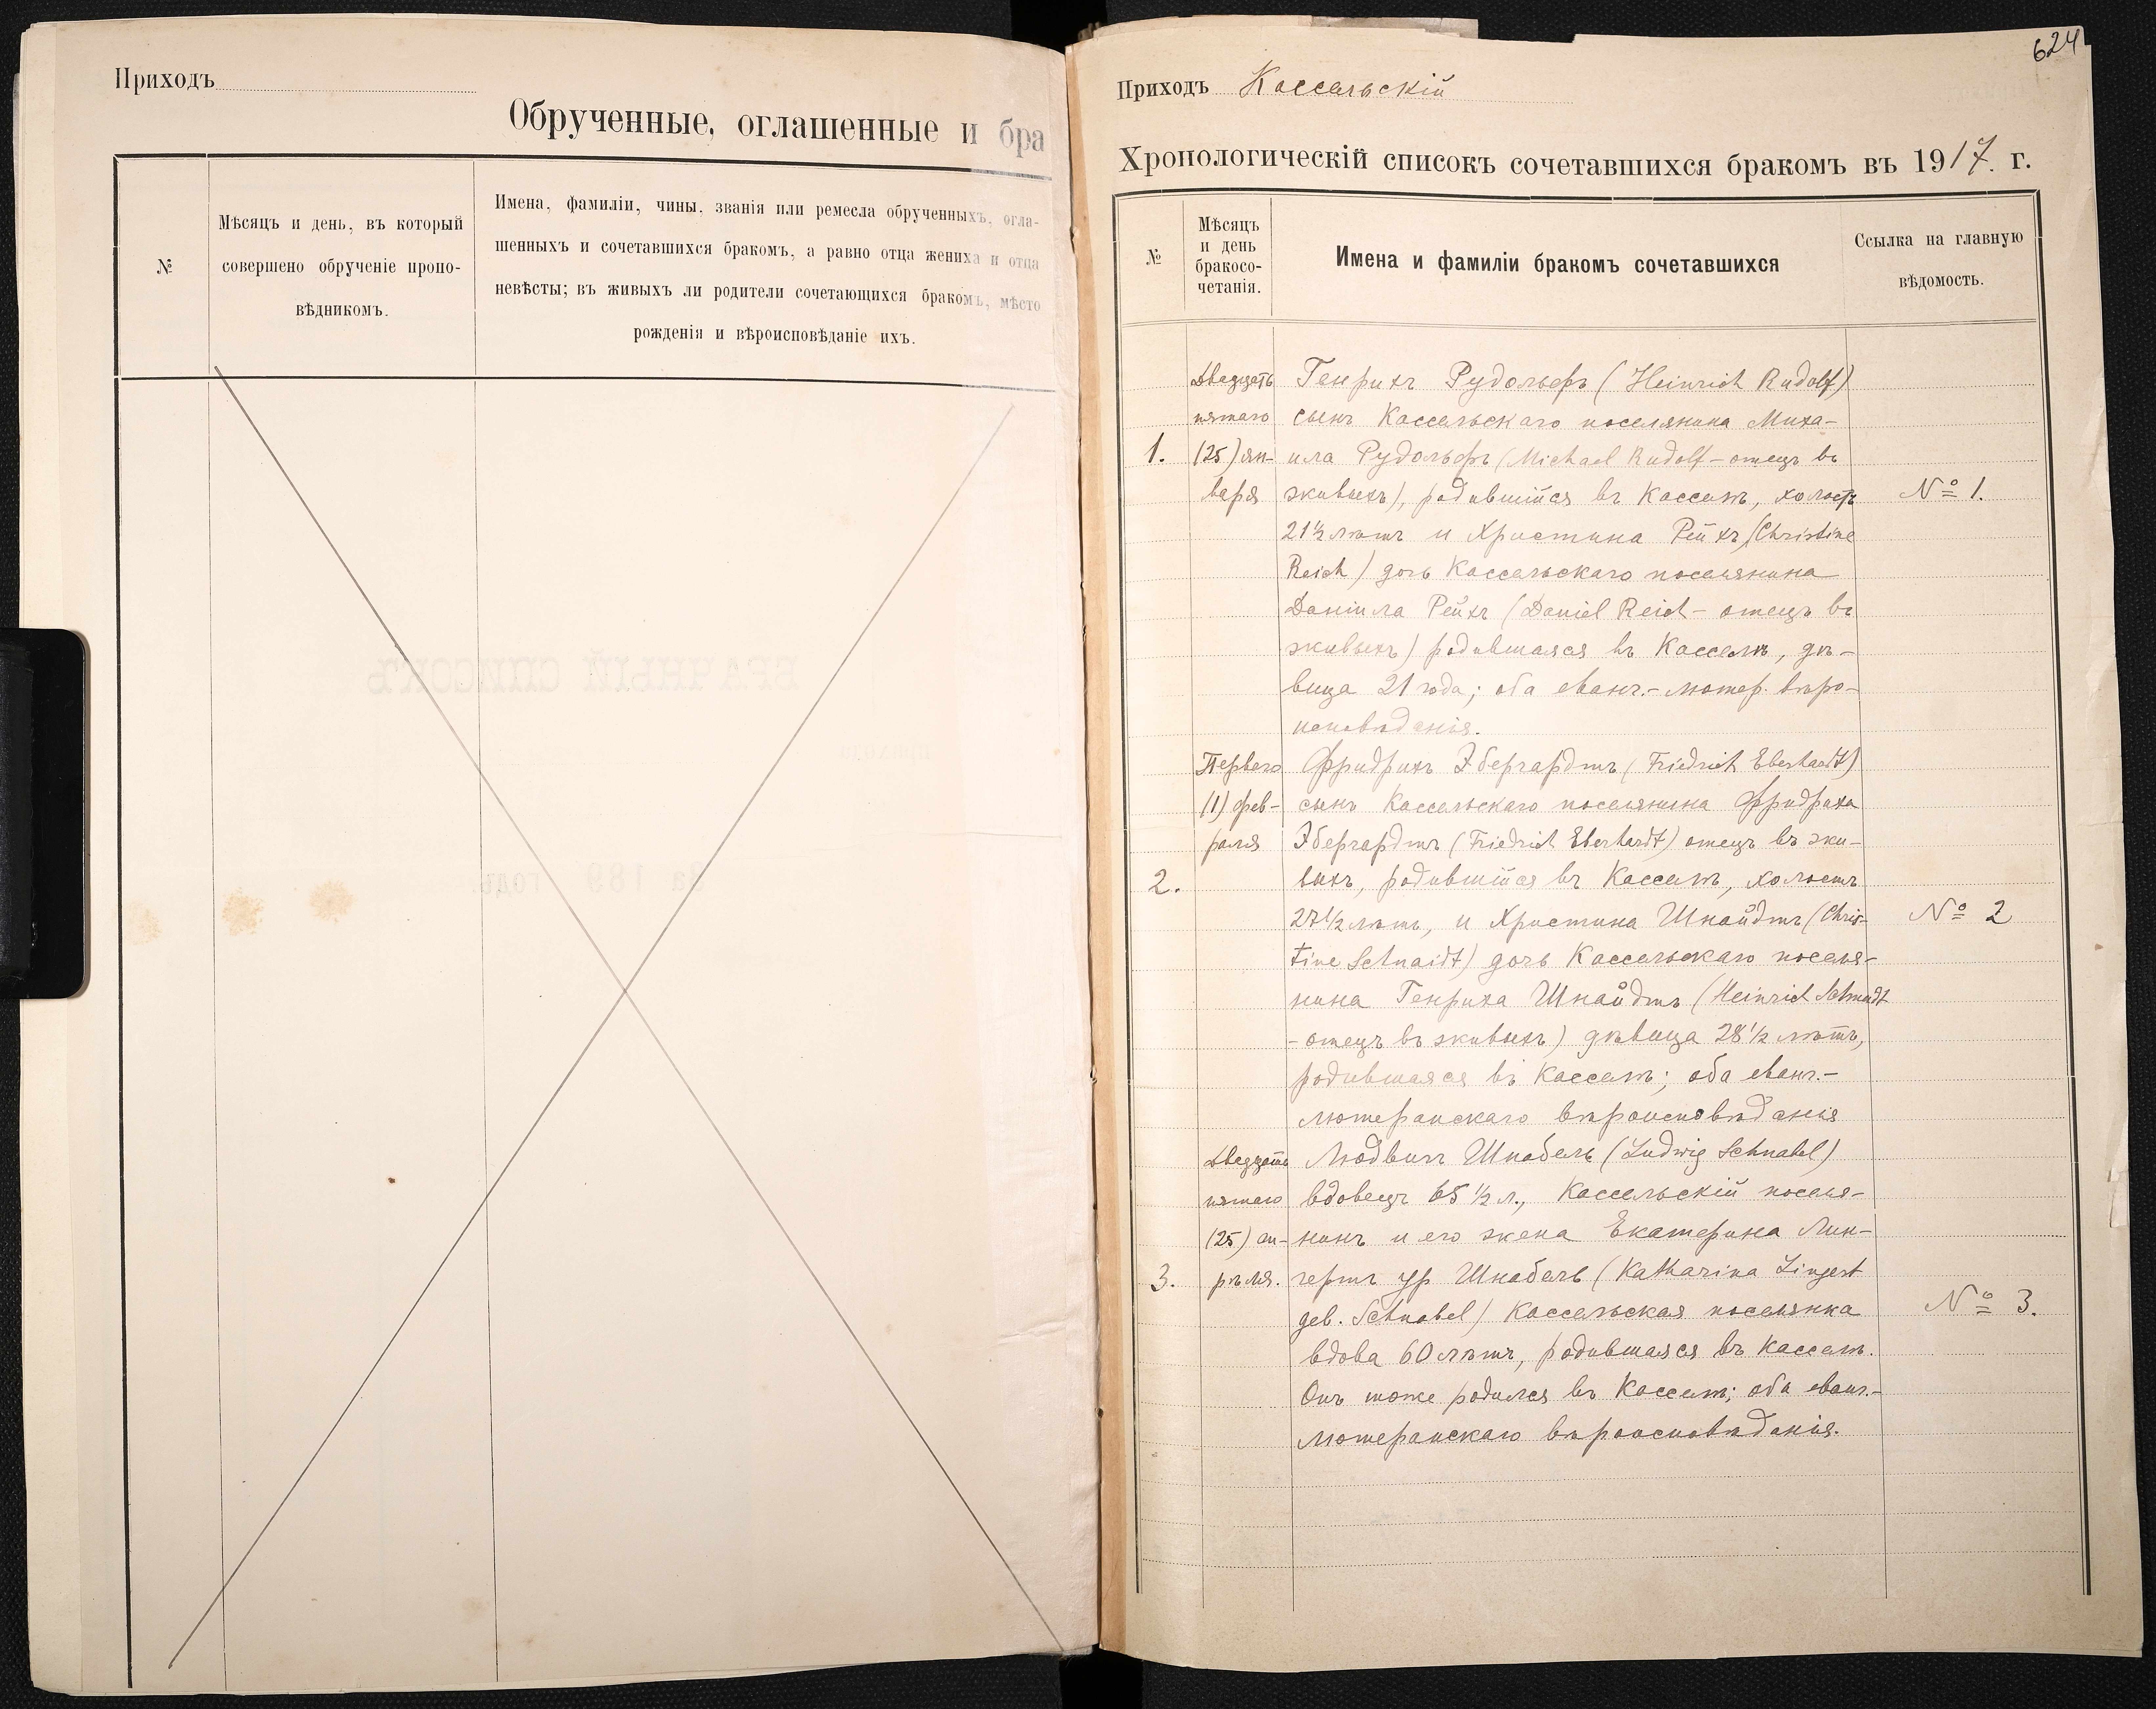 Приходъ
Обрученные, оглашенные и бра
№
Мѣсяцъ и день, въ который
совершено обрученіе пропо-
вѣдникомъ.
Имена, фамиліи, чины, званія или ремесла обрученныхъ, огла-
шенныхъ и сочетавшихся бракомъ, а равно отца жениха и отца
невѣсты; въ живыхъ ли родители сочетающихся бракомъ, мѣсто
рожденія и вѣроисповѣданіе ихъ.
624
Приходъ Кассельскій
Хронологическій списокъ сочетавшихся бракомъ въ 1917. г.
№
Мѣсяцъ
и день
бракосо-
четанія.
Имена и фамиліи бракомъ сочетавшихся
Ссылка на главную
вѣдомость.
1.
Двадцать
пятаго
(25) ян-
варя
Генрихъ Рудольфъ (Heinrich Rudolf)
сынъ Кассельскаго поселянина Миха-
ила Рудольфъ (Michael Rudolf - отецъ въ
живыхъ), родившійся въ Касселѣ, холостъ
21½ лѣтъ и Христина Рейхъ (Christine
Reich) дочь Кассельскаго поселянина
Даніила Рейхъ (Daniel Reich - отецъ въ
живыхъ) родившаяся въ Касселѣ, дѣ-
вица 21 года; оба еванг.-лютер. вѣро-
исповѣданія.
№ 1.
2.
Перваго
(1) фев-
раля
Фридрихъ Эбергардтъ (Friedrich Eberhardt)
сынъ Кассельскаго поселянина Фридриха
Эбергардтъ (Friedrich Eberhardt) отецъ въ жи-
выхъ, родившійся въ Касселѣ, холостъ
27½ лѣтъ, и Христина Шнайдтъ (Chris-
tine Schnaidt) дочь Кассельскаго поселя-
нина Генриха Шнайдтъ (Heinrich Schnaidt
- отецъ въ живыхъ) дѣвица 28½ лѣтъ,
родившаяся въ Касселѣ; оба еванг.-
лютеранскаго вѣроисповѣданія
№ 2
3.
Двадцать
пятаго
(25) ап-
рѣля.
Людвигъ Шнабель (Ludwig Schnabel)
вдовецъ 65½ л., Кассельскій поселя-
нинъ и его жена Екатерина Лин-
гертъ ур Шнабель (Katharina Lingert
geb. Schnabel) Кассельская поселянка
вдова 60 лѣтъ, родившаяся въ Касселѣ.
Онъ тоже родился въ Касселѣ; оба еванг.-
лютеранскаго вѣроисповѣданія.
№ 3.